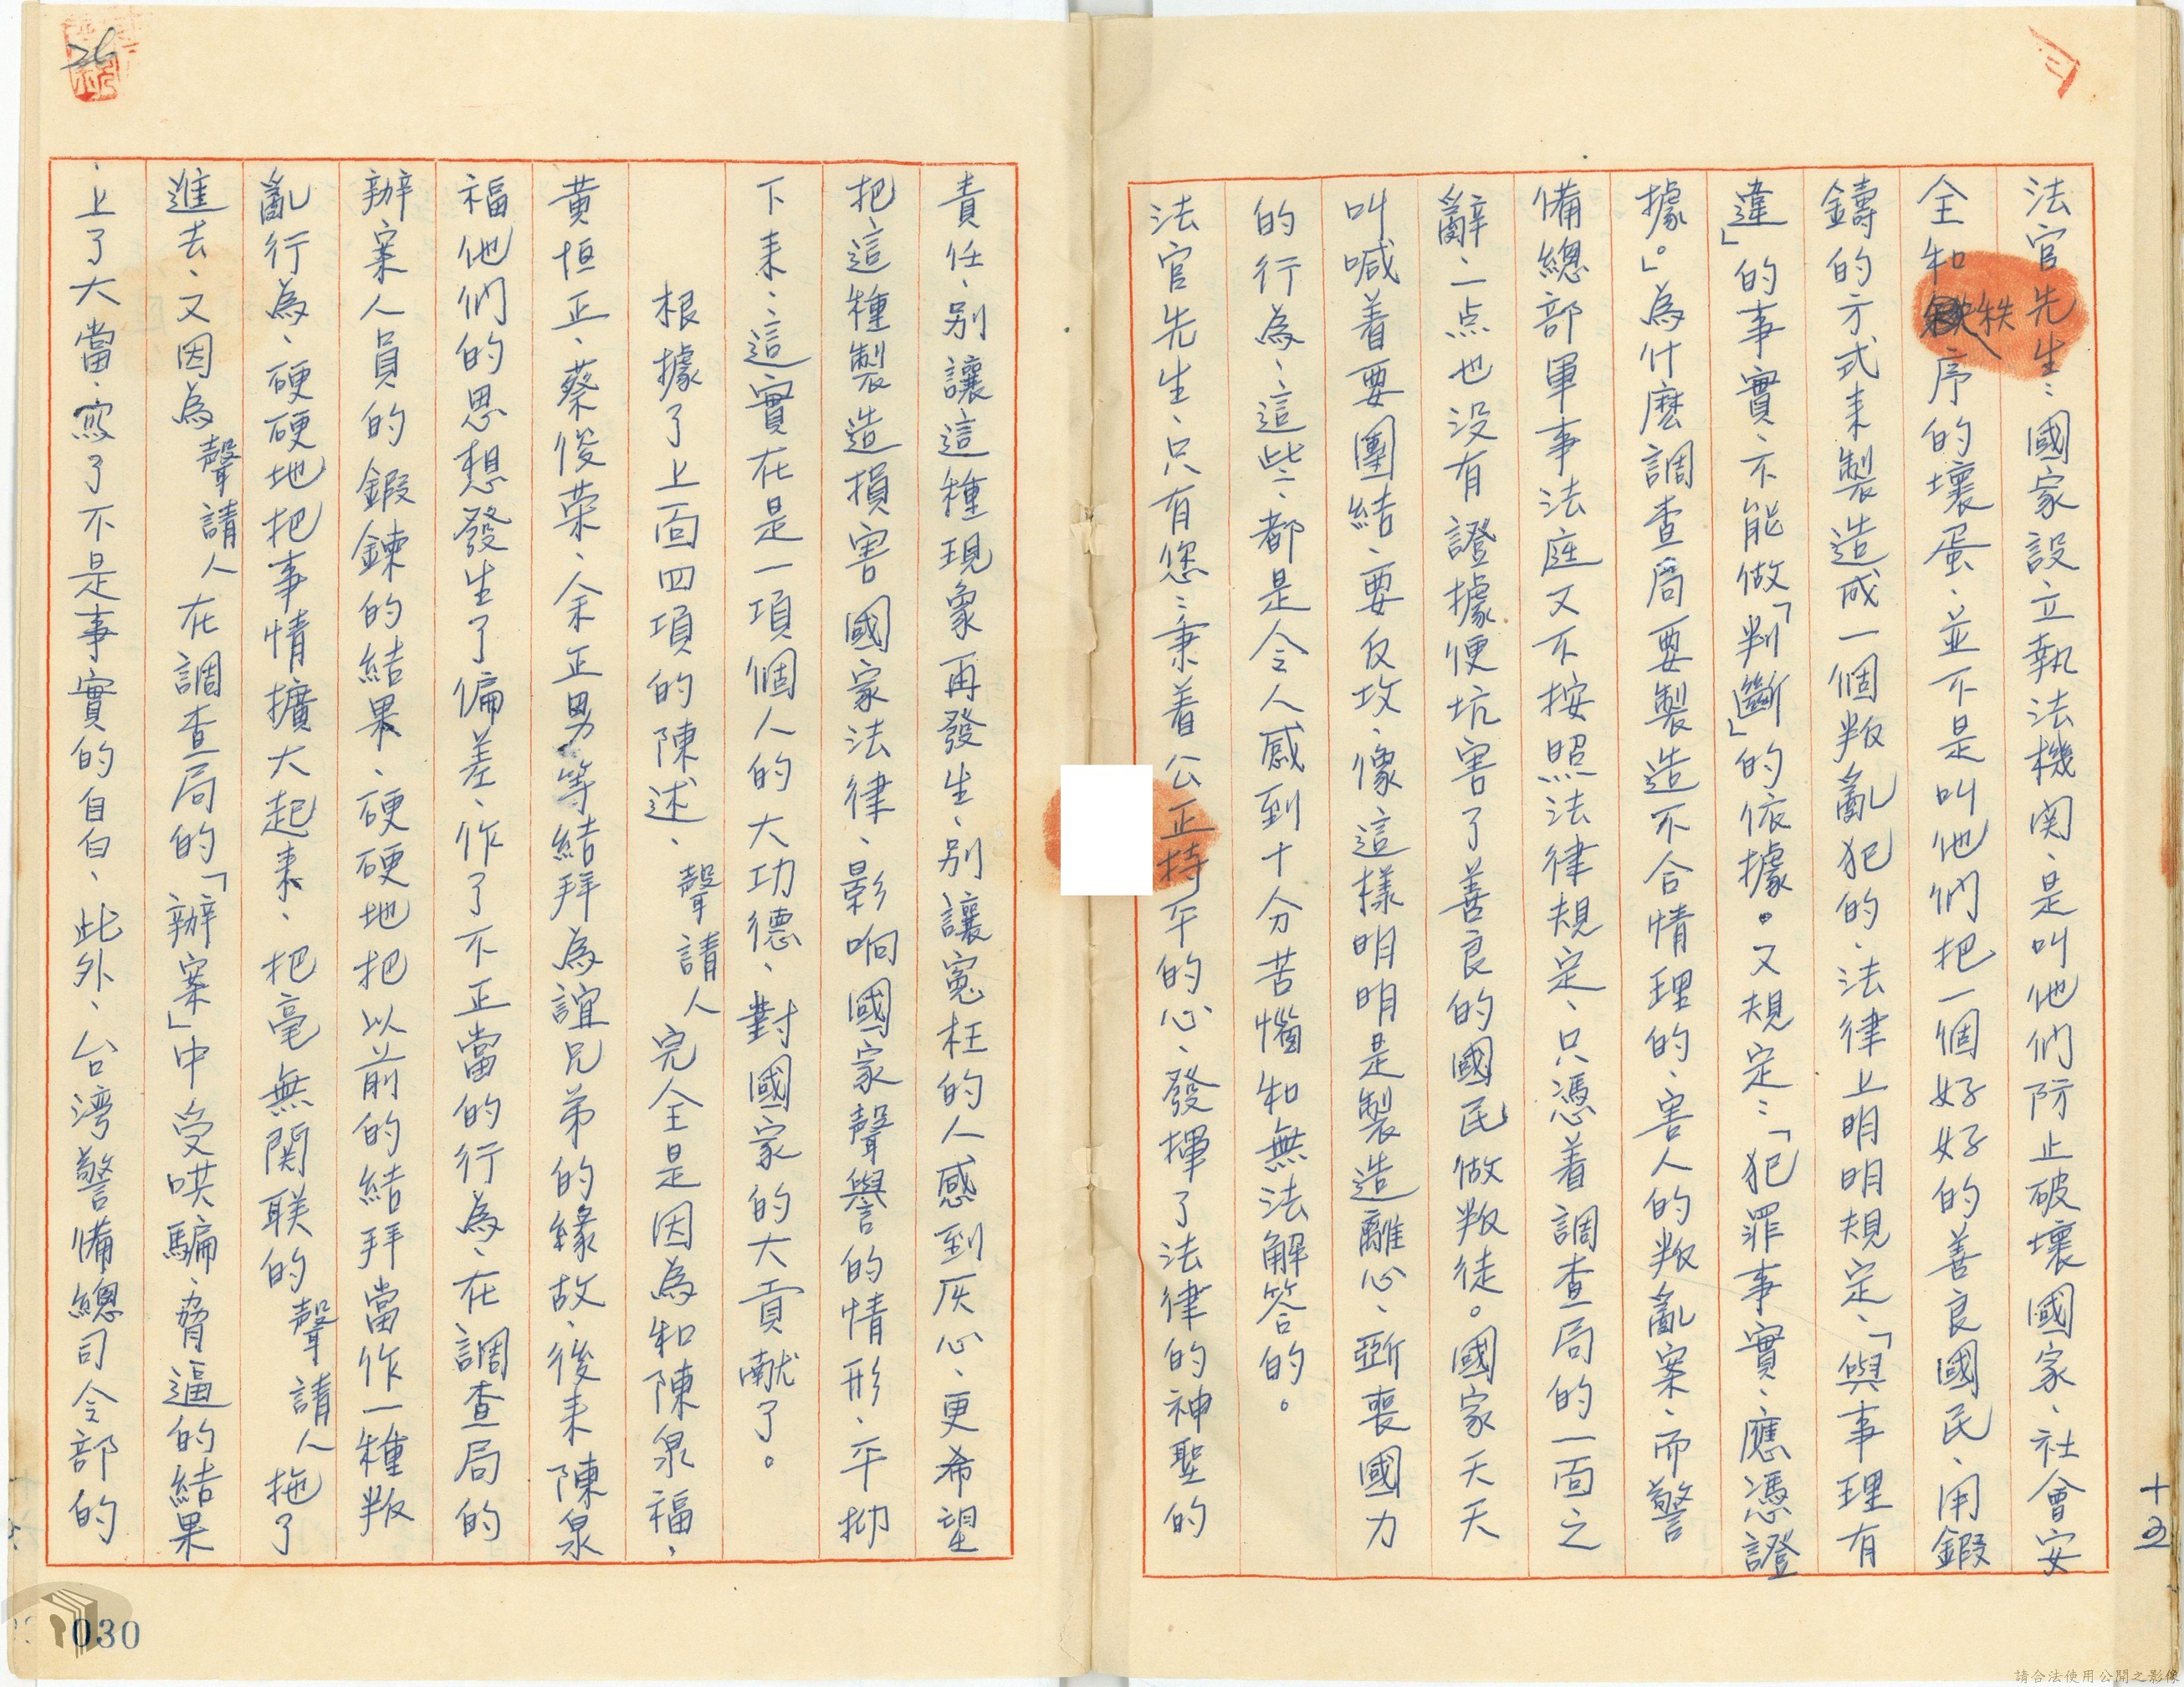 法官先生：國家設立執法機関、是叫他們防止破壞國家、社會安
全和秩序的壞蛋、並不是叫他們把一個好好的善良國民、用鍛
鑄的方式来製造成一個叛亂犯的、法律上明明規定、「與事理有
違」的事實、不能做「判斷」的依據。又規定：「犯罪事實、應憑證
據。」為什麼調查局要製造不合情理的、害人的叛亂案、而警
備總部軍事法庭又不按照法律規定、只憑着調查局的一面之
辭、一点也没有證據便坑害了善良的國民做叛徒。國家天天
叫喊着要團結、要反攻、像這樣明明是製造離心、斲喪國力
的行為、這些、都是令人感到十分苦惱和無法解答的。
法官先生、只有您：秉着公正持平的心、發揮了法律的神聖的
十五
責任、別讓這種現象再發生、別讓冤枉的人感到灰心、更希望
把、這種製造損害國家法律、影响國家聲譽的情形、平抑
下来、這實在是一項個人的大功德、對國家的大貢献了。
根據了上面四項的陳述、聲請人完全是因為和陳泉福、
黄恒正、蔡俊荣、余正男等結拜為誼兄弟的緣故、後来陳泉
福他們的思想發生了偏差、作了不正當的行為、在調查局的
辦案人員的鍛鍊的結果、硬硬地把以前的結拜當作一種叛
亂行為、硬硬地把事情擴大起来、把毫無関联的聲請人拖了
進去、又因為聲請人在調查局的「辦案」中受哄騙、脅逼的結果
、上了大當、寫了不是事實的自白、此外、台湾警備總司令部的
26
030
請合法使用公開之影像